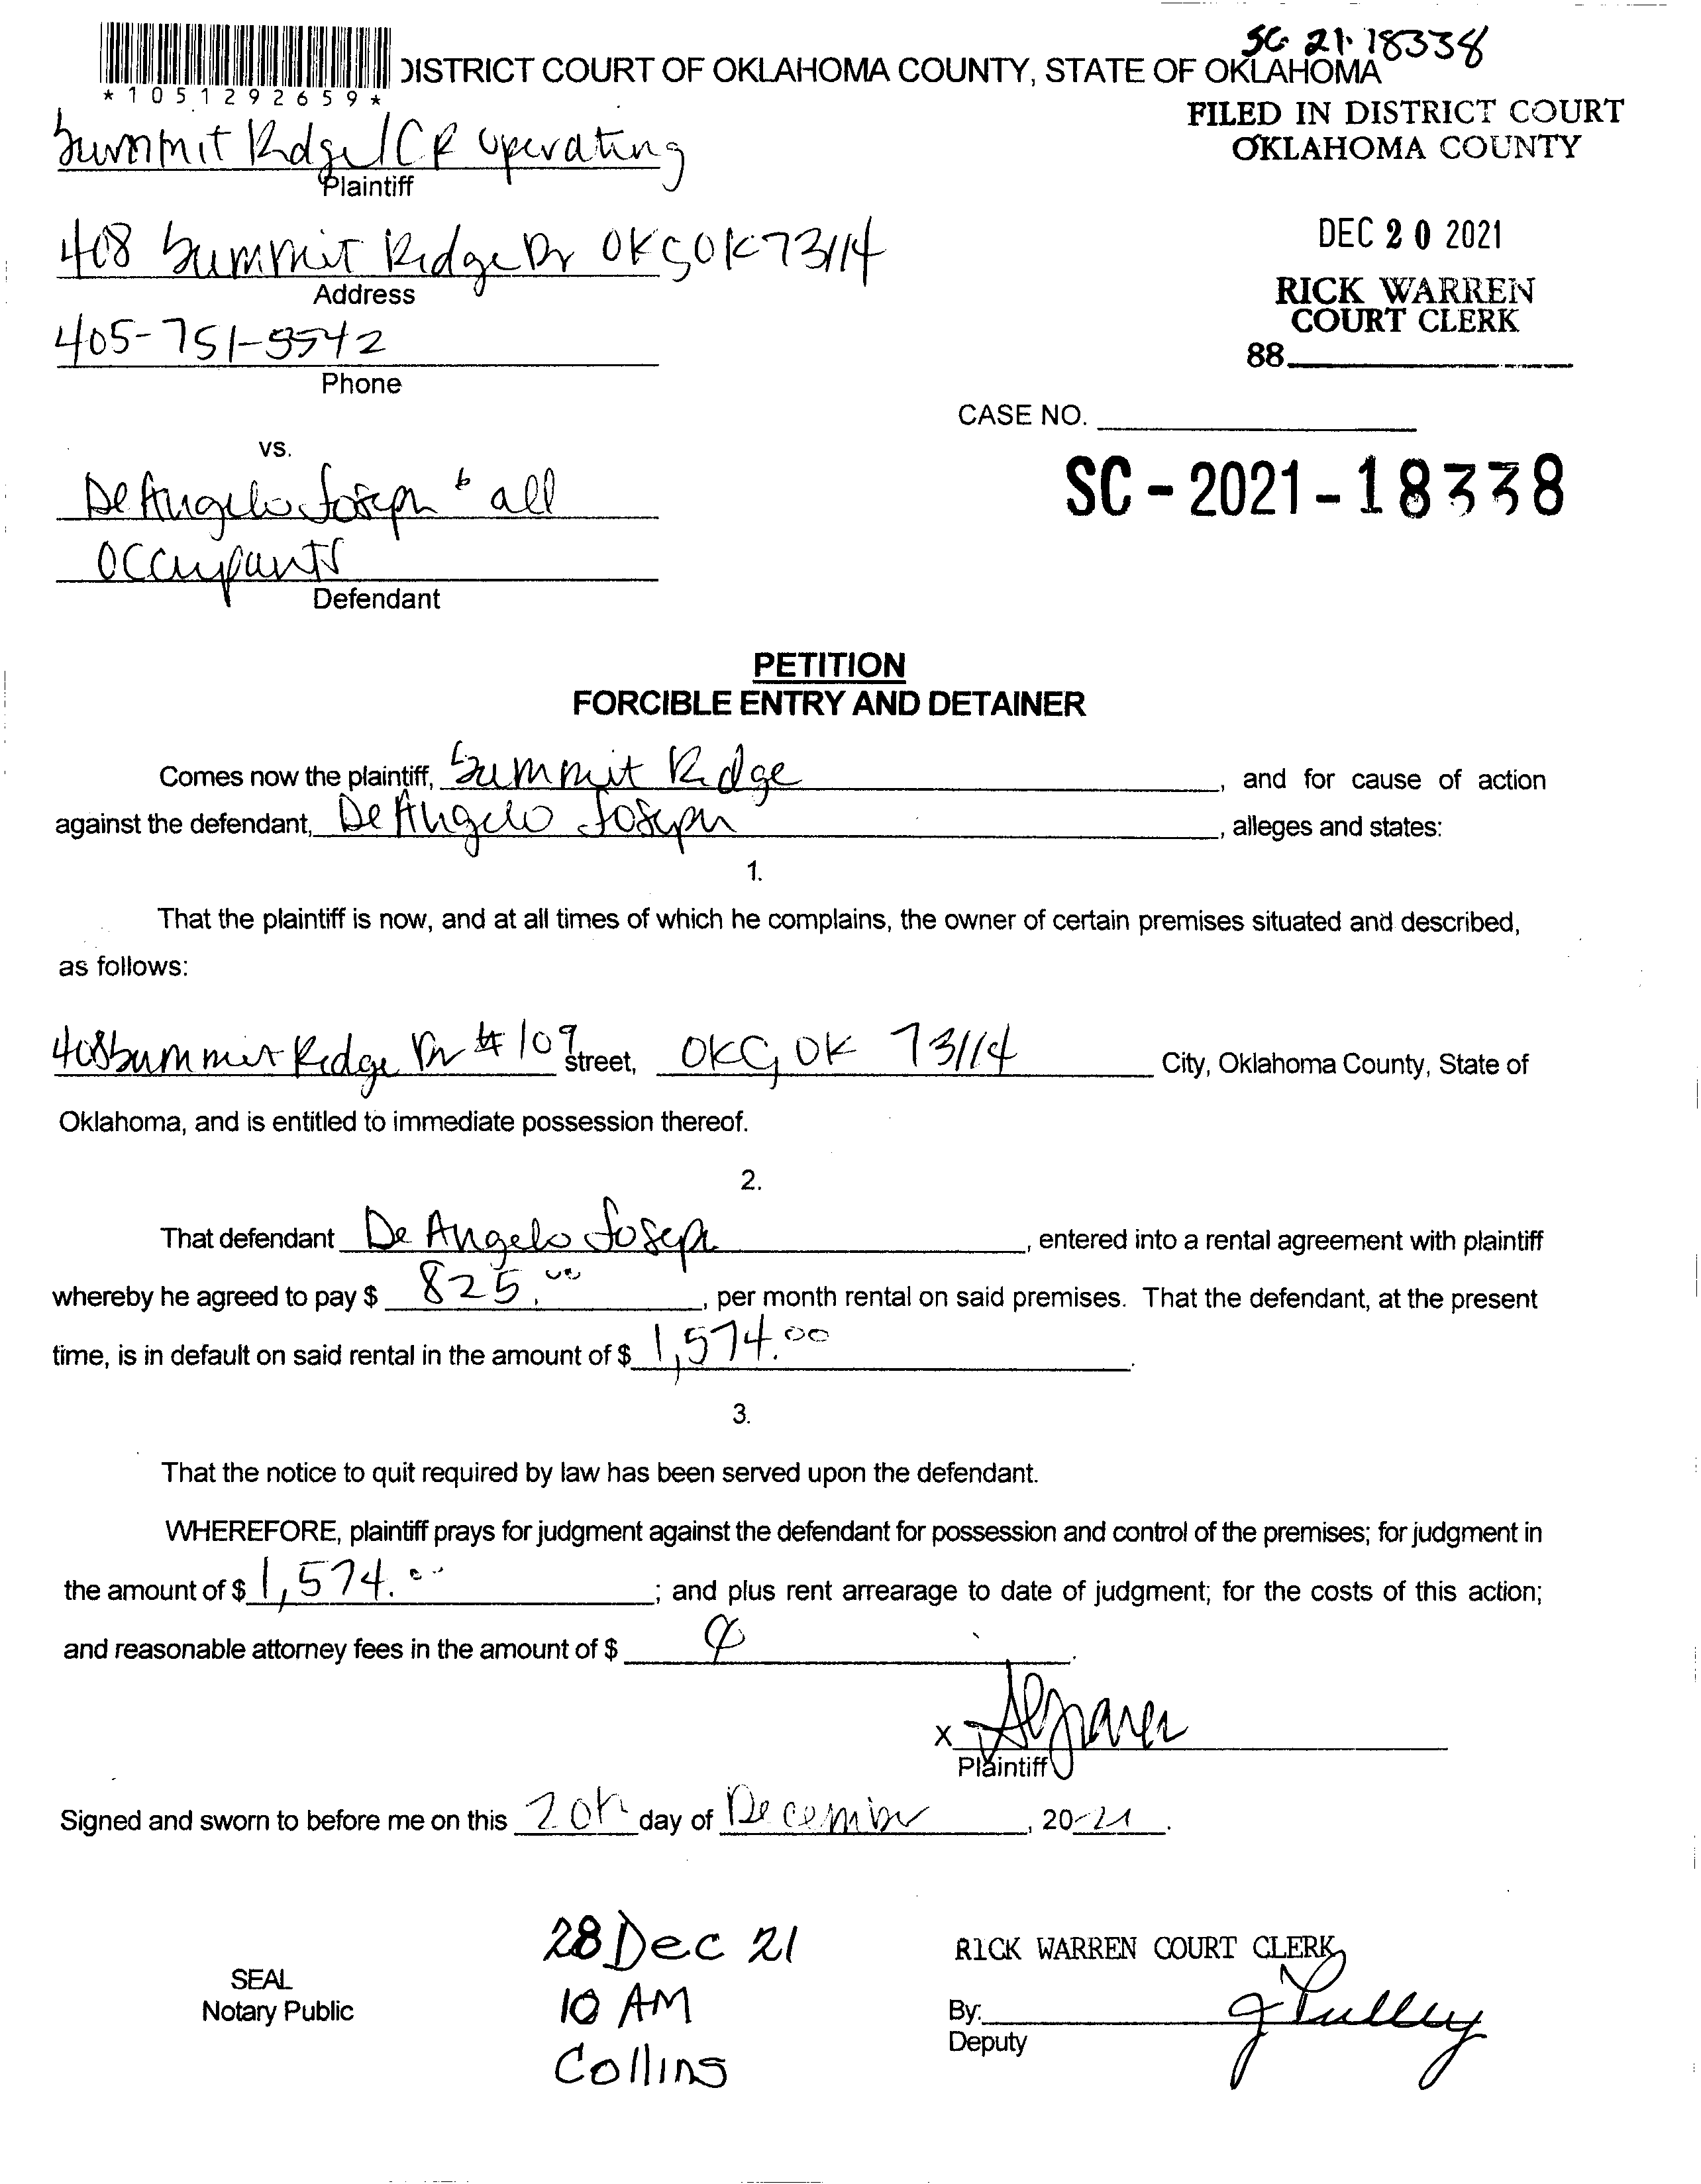 SC-21-18338
*1051292659*
DISTRICT COURT OF OKLAHOMA COUNTY, STATE OF OKLAHOMA
FILED IN DISTRICT COURT
OKLAHOMA COUNTY
Summit Ridge/CR Operating
Plaintiff
408 Summit Ridge Dr OKC, OK 73114
Address
DEC 20 2021
RICK WARREN
COURT CLERK
405-751-5542
Phone
88
CASE NO.
vs.
SC-2021-18338
DeAngelo Joseph & all
occupants
Defendant
PETITION
FORCIBLE ENTRY AND DETAINER
Comes now the plaintiff, Summit Ridge, and for cause of action
against the defendant, DeAngelo Joseph, alleges and states:
1.
That the plaintiff is now, and at all times of which he complains, the owner of certain premises situated and described,
as follows:
408 Summit Ridge Dr #109 street, OKC, OK 73114 City, Oklahoma County, State of
Oklahoma, and is entitled to immediate possession thereof.
2.
That defendant DeAngelo Joseph, entered into a rental agreement with plaintiff
whereby he agreed to pay $ 825.00, per month rental on said premises. That the defendant, at the present
time, is in default on said rental in the amount of $ 1,574.00.
3.
That the notice to quit required by law has been served upon the defendant.
WHEREFORE, plaintiff prays for judgment against the defendant for possession and control of the premises; for judgment in
the amount of $ 1,574.00; and plus rent arrearage to date of judgment; for the costs of this action;
and reasonable attorney fees in the amount of $ 0.
X
Plaintiff
Signed and sworn to before me on this 20th day of December, 2021.
28 Dec 21
10 AM
Collins
SEAL
Notary Public
RICK WARREN COURT CLERK
By:
Deputy